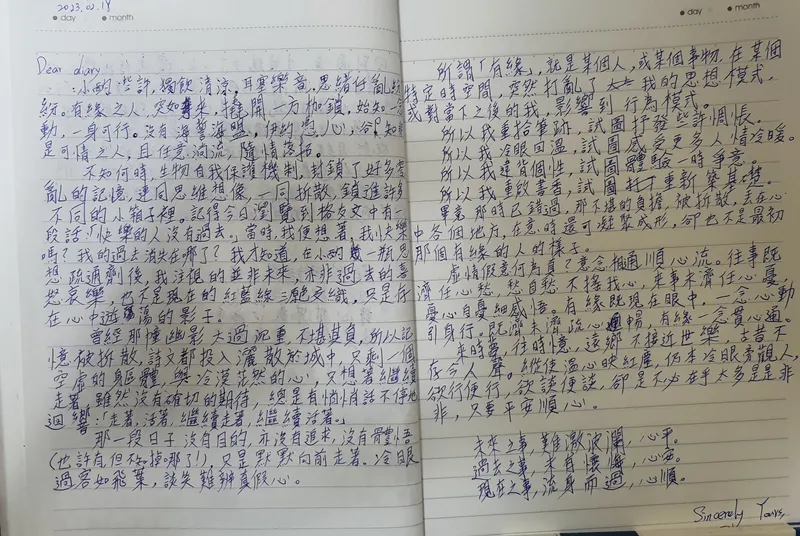 2023.02.19
day month
Dear diary
小酌些許,獨飲清涼,耳塞樂音,思緒任亂紛
紛。有緣之人,突如來,撞開一方枷鎖,始知一念
動,一身可行。沒有海誓海盟,伊的戀人心,卻知
是可惜之人,且任意淌流,隨情落拓。
不知何時,生物自我保護機制,封鎖了好多零
亂的記憶,連同思維想像,一同拆散,鎖進許多
不同的小箱子裡。記得今日瀏覽到格友文中有一
段話:「快樂的人沒有過去」。當時,我便想著,我快樂
嗎?我的過去消失在哪了?我才知道,在小酌幾瓶思
想疏通劑後,我注視的並非未來,亦非過去的喜
怒哀樂,也不是現在的紅藍綠三艷交織,只是存
在心中遊蕩的影子。
曾經那幢幽影太過沉重,不堪其負,所以記
憶被拆散,詩文都投入灑散於城中,只剩一個
空虛的身軀體,與冷漠茫然的心,只想著繼續
走著。雖然沒有確切的期待,總是有悄悄話不停地
迴響:「走著,活著,繼續走著,繼續活著。」
那一段日子沒有目的,亦沒有追求,沒有骨體悟
(也許有但不知掉哪了!),只是默默向前走著。冷眼
過客如飛葉,談笑難辨真假心。
day month
所謂「有緣」,就是某個人,或某個事物,在某個
特定時空間,突然打亂了我的思想模式,
或對當下之後的我,影響到行為模式。
所以我重拾筆跡,試圖抒發些許惆悵。
所以我冷眼回溫,試圖感受更多人情冷暖。
所以我違背個性,試圖體驗一時爭意。
所以我重啟書香,試圖重新築基楚。
畢竟,那時已錯過,那不堪的負擔,被拆散,丟在心
中各個地方,在意時還可凝聚成形,卻也不是最初
那個有緣的人的樣子。
虛情假意何為真?意念相通順心流。往事既
濟任心愁,愁自愁,不接我心,來事未濟任心憂,
憂心自憂細感悟。有緣既現在眼中,一念心動
引身行。既濟未濟疏心暢,有緣一念貫心通。
來時夢,往時憶,遠鄉不接近世樂,古昔不
存今人聲。縱使過心映紅塵,仍未冷眼旁觀人,
欲行便行,欲談便談,卻是不必在乎太多是是非
非,只要平安順心。
未來之事,難激波瀾,心平。
過去之事,未有懷悔,心安。
現在之事,流身而過,心順。
Sincerely Yours,